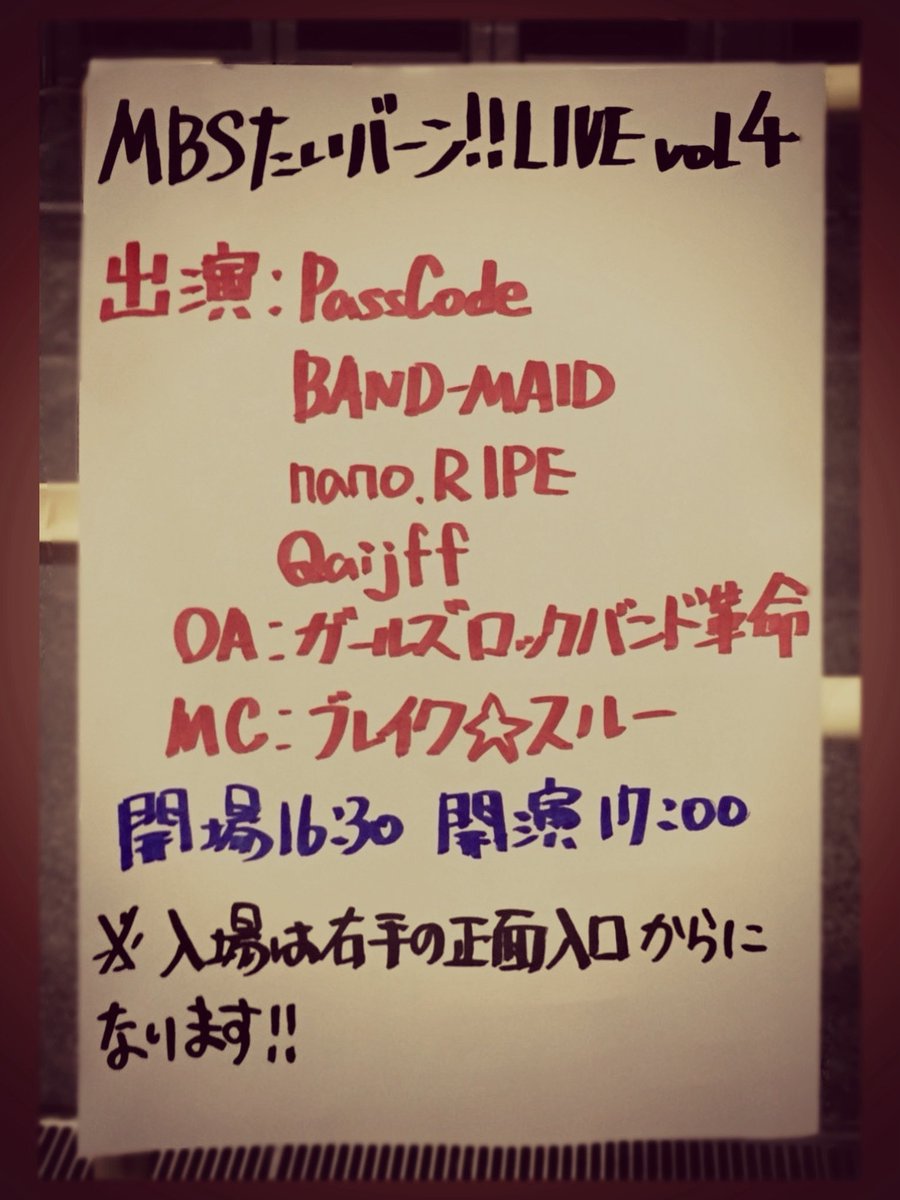 MBSたいバーン!!LIVE vol4
出演:PassCode
BAND-MAID
nano.RIPE
Qaijff
OA:ガールズロックバンド革命
MC:ブレイク☆スルー
開場16:30 開演17:00
※入場は右手の正面入口からに
なります!!